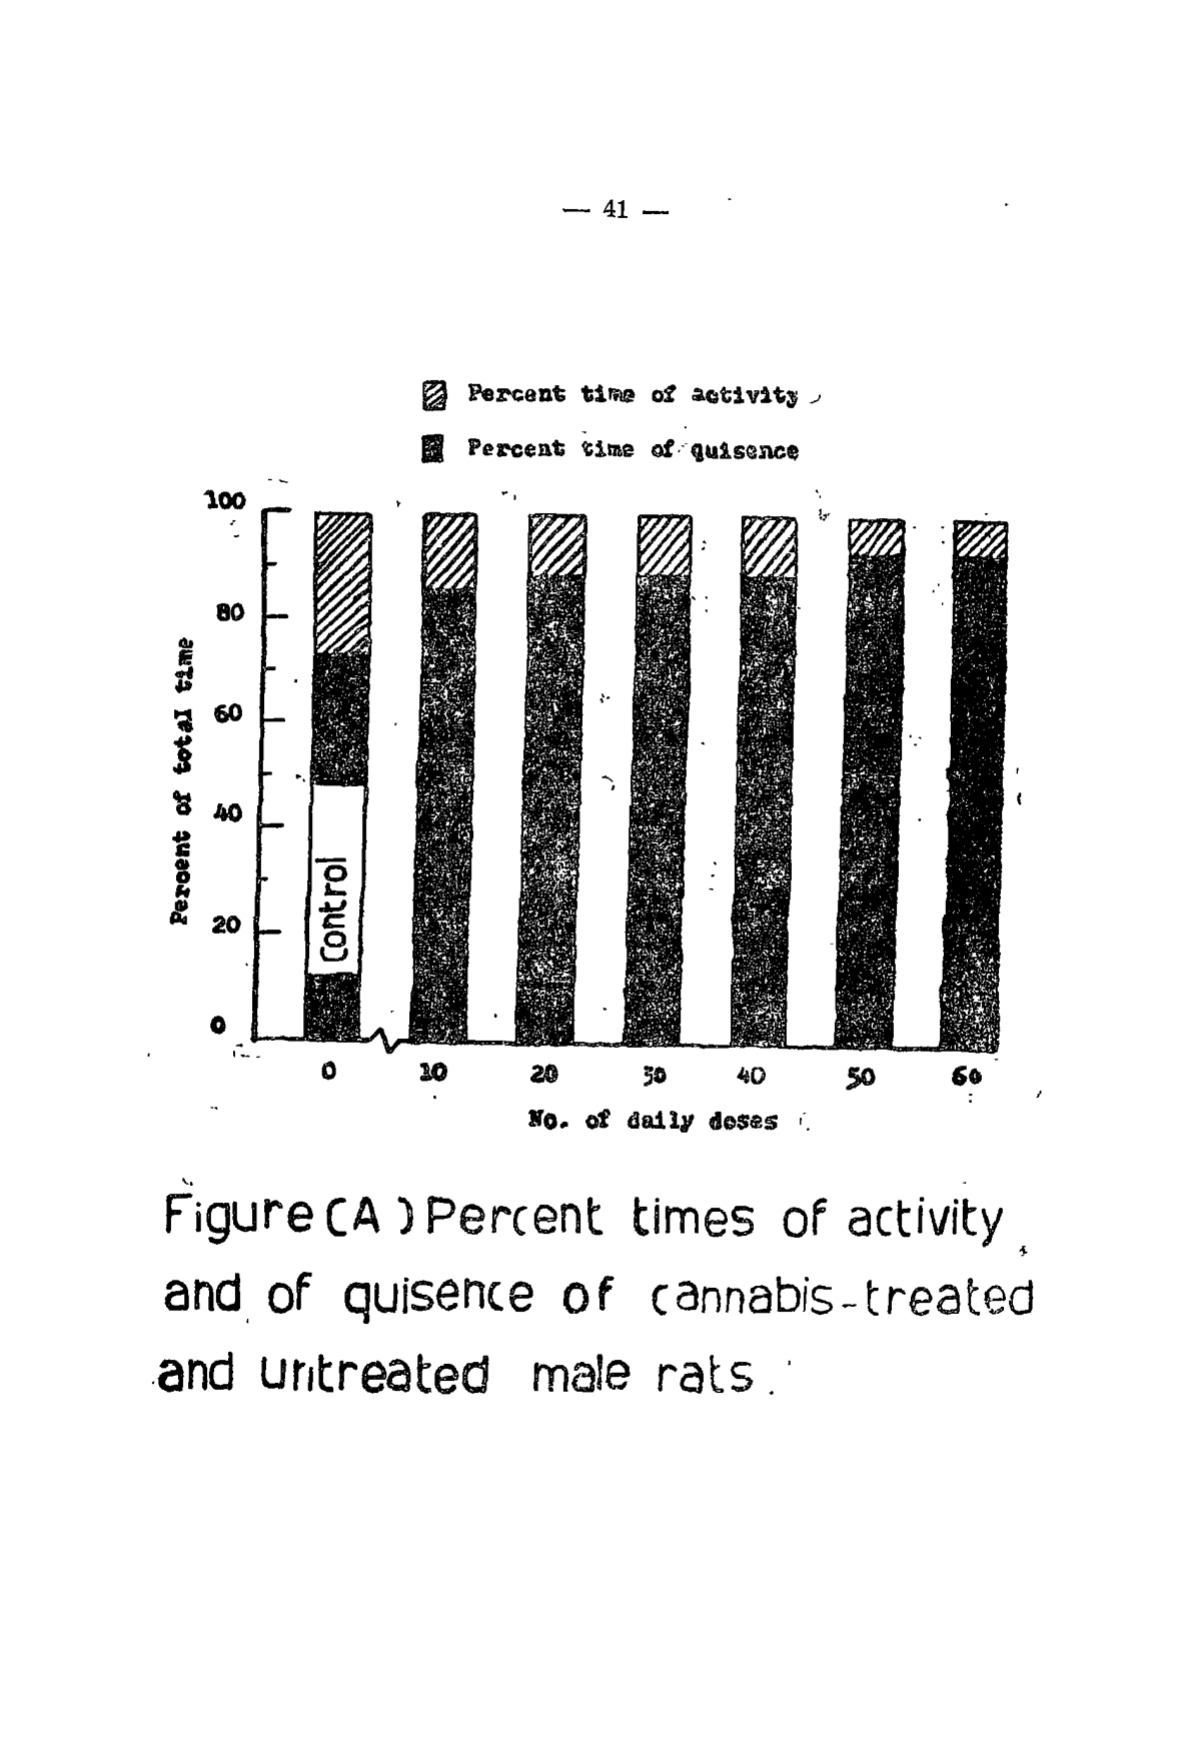 — 41 —
Percent time of activity
Percent time of quisence
100
80
60
40
20
0
Percent of total time
Control
0 10 20 30 40 50 60
No. of daily doses
Figure (A) Percent times of activity
and of quisence of cannabis-treated
and untreated male rats.